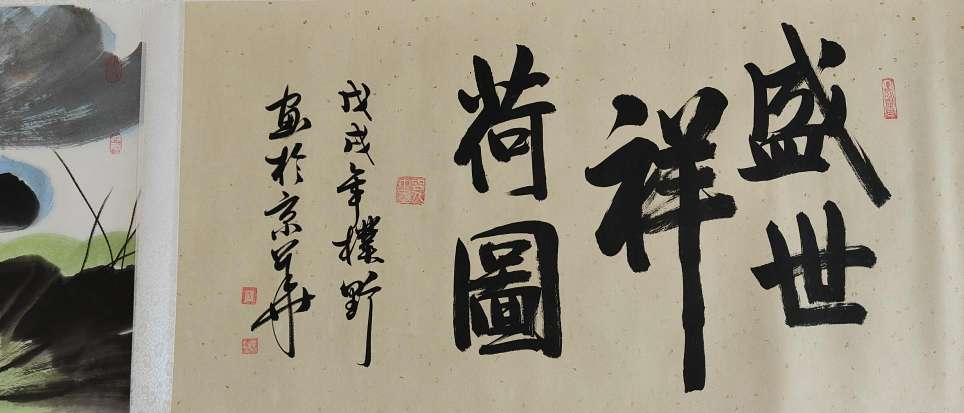 盛世
祥
荷圖
戊戌年樸野
画於京華